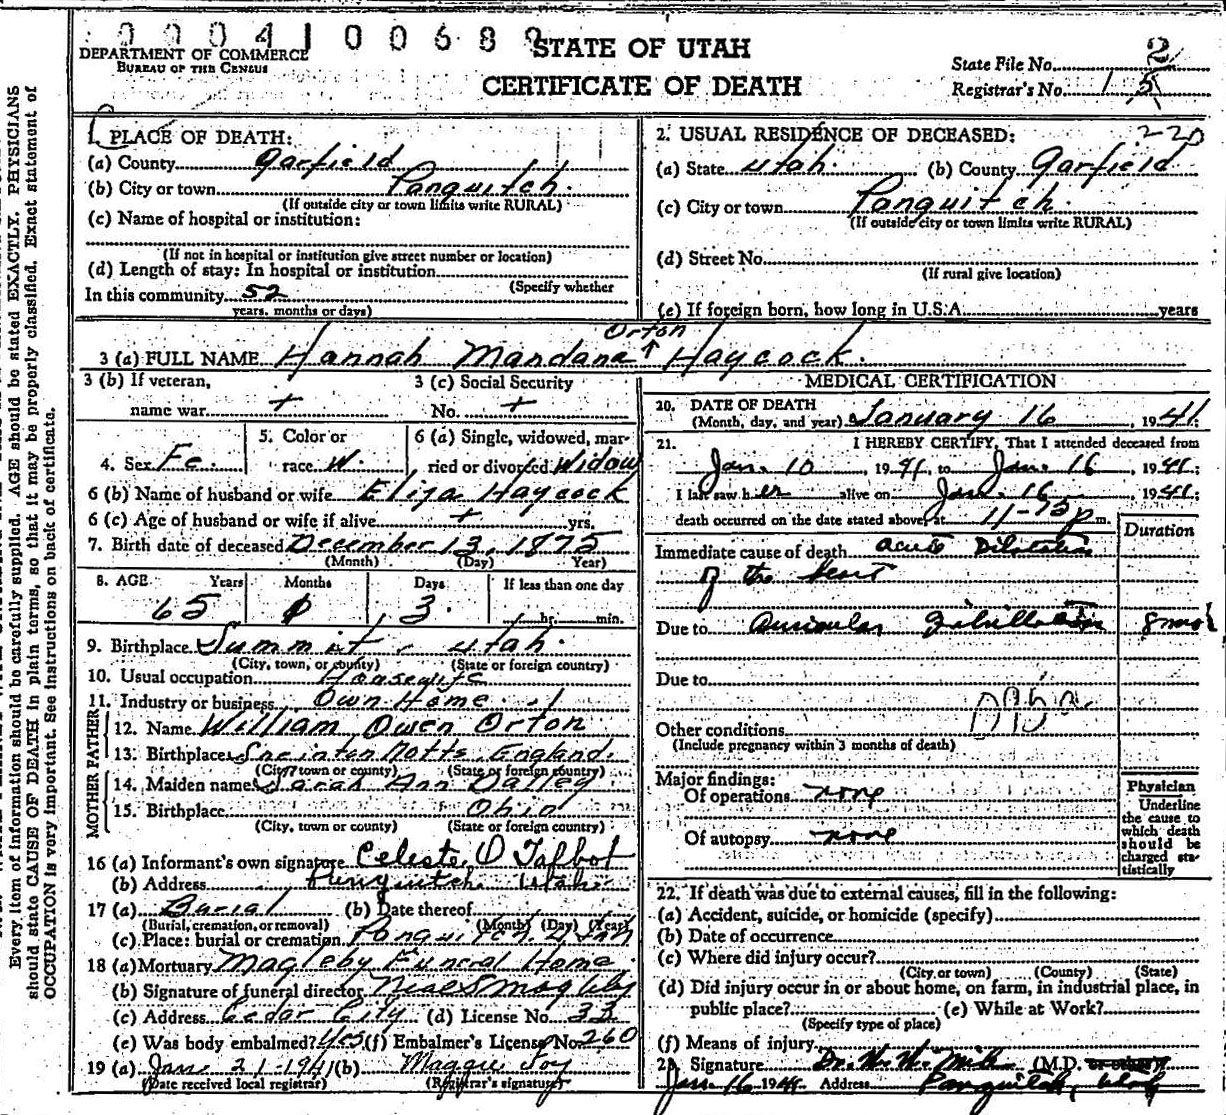 0004100689
DEPARTMENT OF COMMERCE
BUREAU OF THE CENSUS
STATE OF UTAH
CERTIFICATE OF DEATH
State File No. 2
Registrar's No. 1 5
Every item of information should be carefully supplied. AGE should be stated EXACTLY. PHYSICIANS
should state CAUSE OF DEATH in plain terms, so that it may be properly classified. Exact statement of
OCCUPATION is very important. See instructions on back of certificate.
1. PLACE OF DEATH:
(a) County Garfield
(b) City or town Panguitch.
(If outside city or town limits write RURAL)
(c) Name of hospital or institution:
(If not in hospital or institution give street number or location)
(d) Length of stay: In hospital or institution
(Specify whether
In this community 52
years, months or days)
2. USUAL RESIDENCE OF DECEASED: 220
(a) State Utah. (b) County Garfield
(c) City or town Panguitch.
(If outside city or town limits write RURAL)
(d) Street No.
(If rural give location)
(e) If foreign born, how long in U.S.A. years
Orton
3 (a) FULL NAME Hannah Mandana ↑ Haycock.
3 (b) If veteran, 3 (c) Social Security
name war + No. +
4. Sex Fe. 5. Color or race W. 6 (a) Single, widowed, mar-
ried or divorced Widow
6 (b) Name of husband or wife Eliza Haycock
6 (c) Age of husband or wife if alive + yrs.
7. Birth date of deceased December 13, 1875
(Month) (Day) Year)
8. AGE Years Months Days If less than one day
65 3. hr. min.
9. Birthplace Summit, Utah.
(City, town, or county) (State or foreign country)
10. Usual occupation Housewife
11. Industry or business Own Home
FATHER
12. Name William Owen Orton
13. Birthplace Sneinton Notts. England.
(City, town or county) (State or foreign country)
MOTHER
14. Maiden name Sarah Ann Dalley
15. Birthplace Ohio
(City, town or county) (State or foreign country)
16 (a) Informant's own signature Celeste O Talbot
(b) Address Panguitch, Utah.
17 (a) Burial (b) Date thereof
(Burial, cremation, or removal) (Month) (Day) (Year)
(c) Place: burial or cremation Panguitch. Utah
18 (a) Mortuary Magleby Funeral Home.
(b) Signature of funeral director Neal S Magleby
(c) Address Cedar City (d) License No. 33
(e) Was body embalmed? Yes (f) Embalmer's License No. 260
19 (a) Jan. 21-1941 (b) Maggie Joy
(Date received local registrar) (Registrar's signature)
MEDICAL CERTIFICATION
20. DATE OF DEATH
(Month, day, and year) January 16, 1941.
21. I HEREBY CERTIFY, That I attended deceased from
Jan. 10, 1941, to Jan. 16, 1941.
I last saw her alive on Jan. 16, 1941.
death occurred on the date stated above, at 11-75 p m.
Duration
Immediate cause of death acute Dilatation
of the heart
Due to Auricular Fibrillation 8 mo
Due to
Other conditions
(Include pregnancy within 3 months of death)
Major findings:
Of operations none
Of autopsy none
Physician
Underline
the cause to
which death
should be
charged sta-
tistically
22. If death was due to external causes, fill in the following:
(a) Accident, suicide, or homicide (specify)
(b) Date of occurrence
(c) Where did injury occur?
(City or town) (County) (State)
(d) Did injury occur in or about home, on farm, in industrial place, in
public place? (e) While at Work?
(Specify type of place)
(f) Means of injury
23 Signature Dr. W. W. (M.D. or other)
Jan. 16 1941 Address Panguitch, Utah